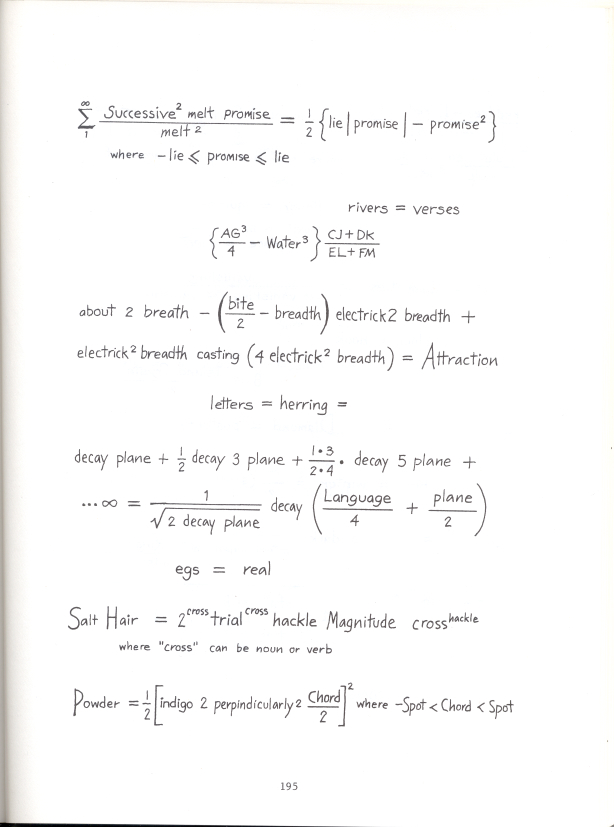 ∞ ∑ 1 Successive² melt promise / melt² = 1/2 {lie | promise | − promise²}
where −lie ⩽ promise ⩽ lie
rivers = verses
{AG³/4 − Water³} CJ+DK / EL+FM
about 2 breath − (bite/2 − breadth) electrick2 breadth +
electrick² breadth casting (4 electrick² breadth) = Attraction
letters = herring =
decay plane + 1/2 decay 3 plane + 1•3/2•4 • decay 5 plane +
...∞ = 1/√2 decay plane decay (Language/4 + plane/2)
egs = real
Salt Hair = 2^cross trial^cross hackle Magnitude cross^hackle
where "cross" can be noun or verb
Powder = 1/2 [indigo 2 perpindicularly 2 Chord/2]² where −Spot < Chord < Spot
195